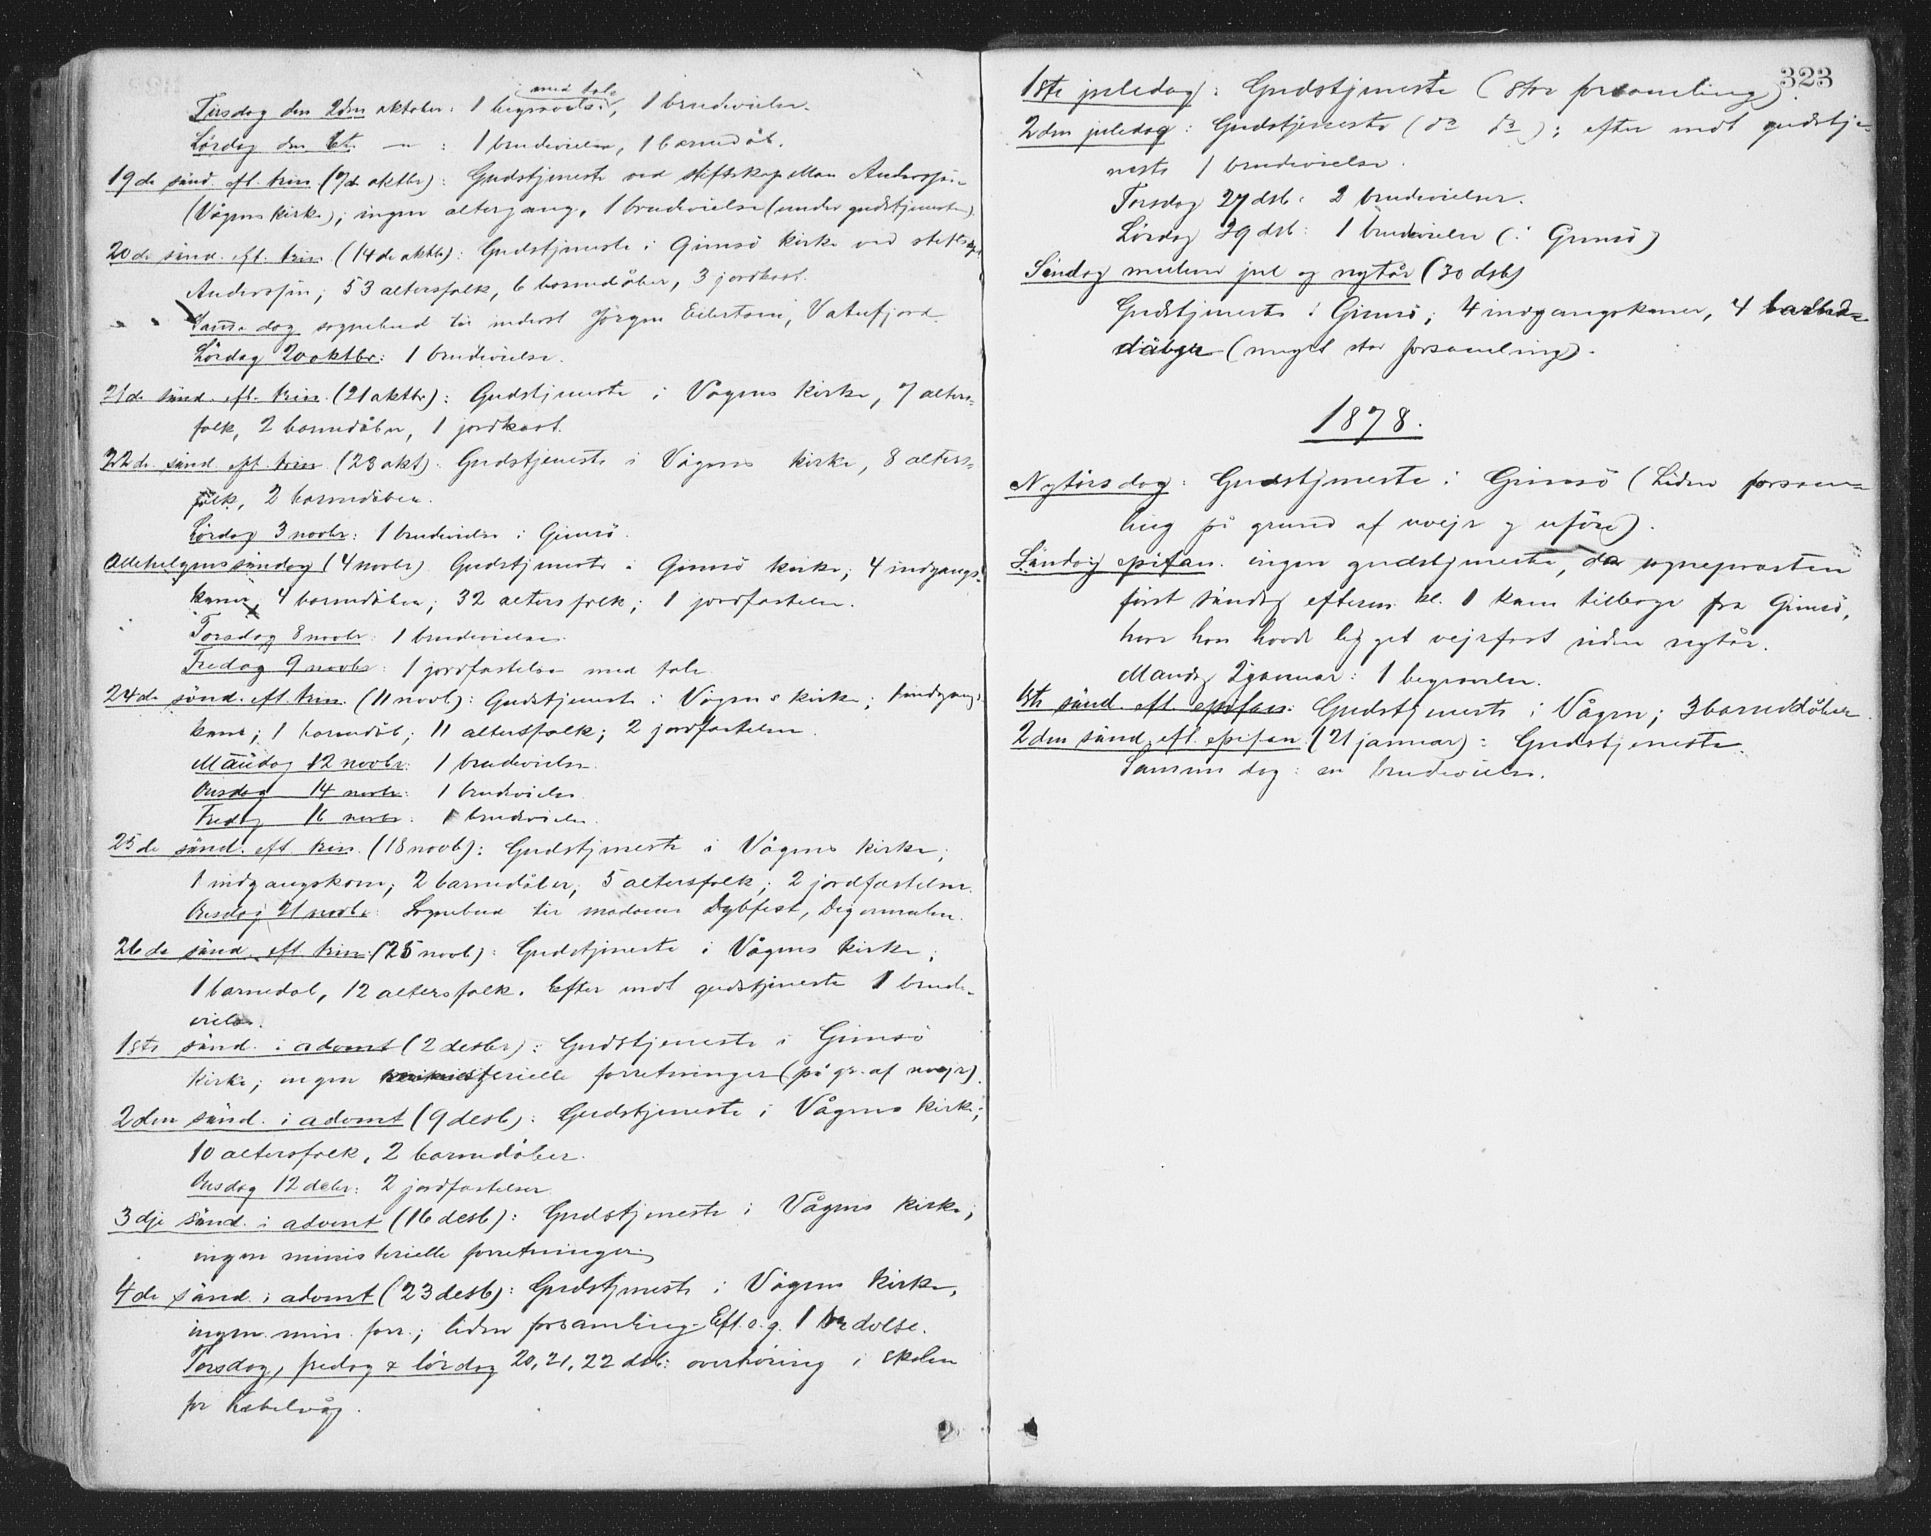 med tale
Tirsdag den 2den oktober: 1 begravelse, 1 brudevielse.
Lördag den 6te — " — : 1 brudevielse, 1 barnedåb.
19de sönd. eft. trin. (7de oktbr): Gudstjeneste ved stiftskapellan Anderssen
(Vågens kirke); ingen altergang, 1 brudevielse (under gudstjenesten).
20de sönd. eft. trin. (14de oktbr): Gudstjeneste i Gimsö kirke ved stiftskap.
Anderssen; 53 altersfolk, 6 barnedåber, 3 jordkast.
Samme dag sognebud til inderst Jörgen Eilertsen, Vaterfjord.
Lördag 20 oktbr: 1 brudevielse.
21de sönd. eft. trin. (21 oktbr): Gudstjeneste i Vågens kirke, 7 alters-
folk, 2 barnedåber, 1 jordkast.
22de sönd. eft. trin. (28 okt): Gudstjeneste i Vågens kirke, 8 alters-
folk, 2 barnedåber.
Lördag 3 novbr: 1 brudevielse i Gimsö.
Allehelgenssöndag (4 novbr) Gudstjeneste i Gimsö kirke; 4 indgangs-
koner, 4 barnedåber; 32 altersfolk; 1 jordfæstelse.
Torsdag 8 novbr: 1 brudevielse.
Fredag 9 novbr: 1 jordfæstelse med tale.
24de sönd. eft. trin. (11 novb): Gudstjeneste i Vågens kirke; 1 indgangs-
kone; 1 barnedåb; 11 altersfolk; 2 jordfæstelser.
Mandag 12 novbr: 1 brudevielse.
Onsdag 14 novbr: 1 brudevielse.
Fredag 16 novbr: 1 brudevielse.
25de sönd. eft. trin. (18 novb): Gudstjeneste i Vågens kirke;
1 indgangskone; 2 barnedåber; 5 altersfolk; 2 jordfæstelser.
Onsdag 21 novbr: Sognebud til madame Dybfest, Digermulen.
26de sönd. eft. trin. (25 novb): Gudstjeneste i Vågens kirke;
1 barnedåb, 12 altersfolk. Efter endt gudstjeneste 1 brude-
vielse.
1ste sönd. i advent (2 desbr): Gudstjeneste i Gimsö
kirke; ingen ministerielle forretninger (på gr. af uvejr).
2den sönd. i advent (9 desb): Gudstjeneste i Vågens kirke;
10 altersfolk, 2 barnedåber.
Onsdag 12 debr: 2 jordfæstelser.
3dje sönd. i advent (16 desb): Gudstjeneste i Vågens kirke;
ingen ministerielle forretninger.
4de sönd. i advent (23 desb): Gudstjeneste i Vågens kirke,
ingen min. forr.; liden forsamling. Eft. o. g. 1
Torsdag, fredag & lördag 20, 21, 22 dsb: overhöring i skolen
for Kabelvåg.
323
1ste juledag: Gudstjeneste (stor forsamling).
2den juledag: Gudstjeneste (do do); efter endt gudstje-
neste 1 brudevielse.
Torsdag 27 dsb: 2 brudevielser.
Lördag 29 dsb: 1 brudevielse (i Gimsö)
Söndag mellem jul og nytår (30 dsb)
Gudstjeneste i Gimsö; 4 indgangskoner, 4 barne-
dåber (meget stor forsamling).
1878.
Nytårsdag: Gudstjeneste i Gimsö (Liden forsam-
ling på grund af uvejr og uföre).
Söndag epifan. ingen gudstjeneste, da sognepræsten
först söndag efterm. kl. 1 kom tilbage fra Gimsö,
hvor han havde ligget vejrfast siden nytår.
Mandag januar: 1 begravelse.
1ste sönd. eft. epifan: Gudstjeneste i Vågen; 3 barnedåber.
2den sönd. eft. epifan. (21 januar): Gudstjeneste.
Samme dag: en brudevielse.